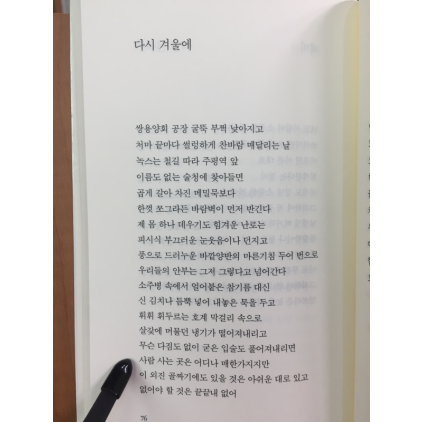 다시 겨울에
쌍용양회 공장 굴뚝 부쩍 낮아지고
처마 끝마다 썰렁하게 찬바람 매달리는 날
녹스는 철길 따라 주평역 앞
이름도 없는 술청에 찾아들면
곱게 갈아 차진 메밀묵보다
한껏 쪼그라든 바람벽이 먼저 반긴다
제 몸 하나 데우기도 힘겨운 난로는
피시식 부끄러운 눈웃음이나 던지고
풍으로 드러누운 바깥양반의 마른기침 두어 번으로
우리들의 안부는 그저 그렇다고 넘어간다
소주병 속에서 얼어붙은 참기름 대신
신 김치나 듬뿍 넣어 내놓은 묵을 두고
휘휘 휘두르는 호계 막걸리 속으로
살갗에 머물던 냉기가 떨어져내리고
무슨 다짐도 없이 굳은 입술도 풀어져내리면
사람 사는 곳은 어디나 매한가지지만
이 외진 골짜기에도 있을 것은 아쉬운 대로 있고
없어야 할 것은 끝끝내 없어
76